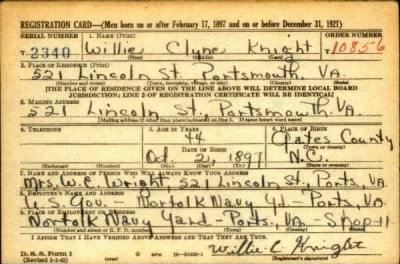 REGISTRATION CARD—(Men born on or after February 17, 1897 and on or before December 31, 1921)
SERIAL NUMBER 1. NAME (Print) ORDER NUMBER
T 2340 Willie Clyne Knight 10856
(First) (Middle) (Last)
2. PLACE OF RESIDENCE (Print)
521 Lincoln St. Portsmouth, VA.
(Number and street) (Town, township, village, or city) (County) (State)
[THE PLACE OF RESIDENCE GIVEN ON THE LINE ABOVE WILL DETERMINE LOCAL BOARD
JURISDICTION; LINE 2 OF REGISTRATION CERTIFICATE WILL BE IDENTICAL]
3. MAILING ADDRESS
521 Lincoln St. Portsmouth. VA.
[Mailing address if other than place indicated on line 2. If same insert word same]
4. TELEPHONE 5. AGE IN YEARS 6. PLACE OF BIRTH
44 Gates County
DATE OF BIRTH (Town or county)
Oct 2, 1897 N.C.
(Exchange) (Number) (Mo.) (Day) (Yr.) (State or country)
7. NAME AND ADDRESS OF PERSON WHO WILL ALWAYS KNOW YOUR ADDRESS
Mrs. W. C. Wright, 521 Lincoln St., Ports, Va.
8. EMPLOYER'S NAME AND ADDRESS
U.S. Gov. - Norfolk Navy Yd - Ports, Va.
9. PLACE OF EMPLOYMENT OR BUSINESS
Norfolk Navy Yard - Ports, Va. - Shop 11
(Number and street or R. F. D. number) (Town) (County) (State)
I AFFIRM THAT I HAVE VERIFIED ABOVE ANSWERS AND THAT THEY ARE TRUE.
D. S. S. Form 1
Willie C Knight
(Registrant's signature)